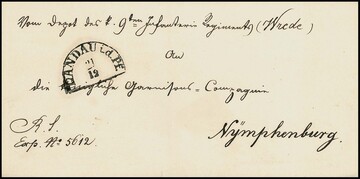 Vom Depot des k. 9ten Infanterie Regiments (Wrede)
An
LANDAU i.d. PF.
21
12
die Königliche Garnisons-Compagnie
R. S.
Exp. No 5612
Nÿmphenburg.